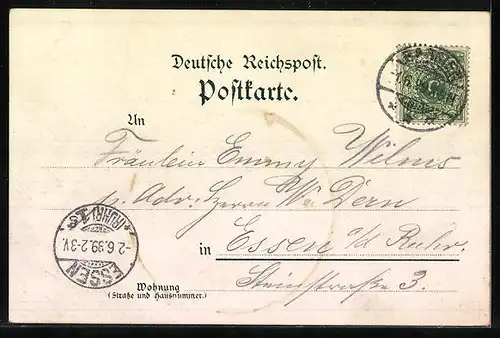 Deutsche Reichspost.
Postkarte.
An
Fräulein Emmy Wilms
p. Adr. Herrn W. Dern
in Essen a/d Ruhr.
Steinstraße 3.
Wohnung
(Straße und Hausnummer.)
ESSEN
*(RUHR) 1 s
2.6.99. 2-3 V.